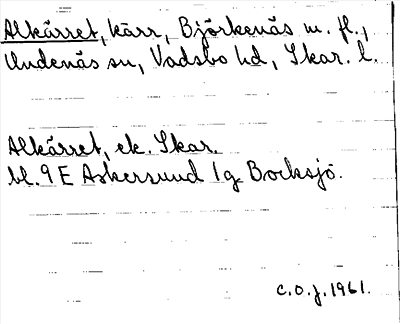 Alkärret, kärr, Björkenäs m. fl.,
Undenäs sn, Vadsbo hd, Skar. l.
Alkärret, ek. Skar.
bl. 9 E Askersund 1g Bocksjö.
C.O.J. 1961.